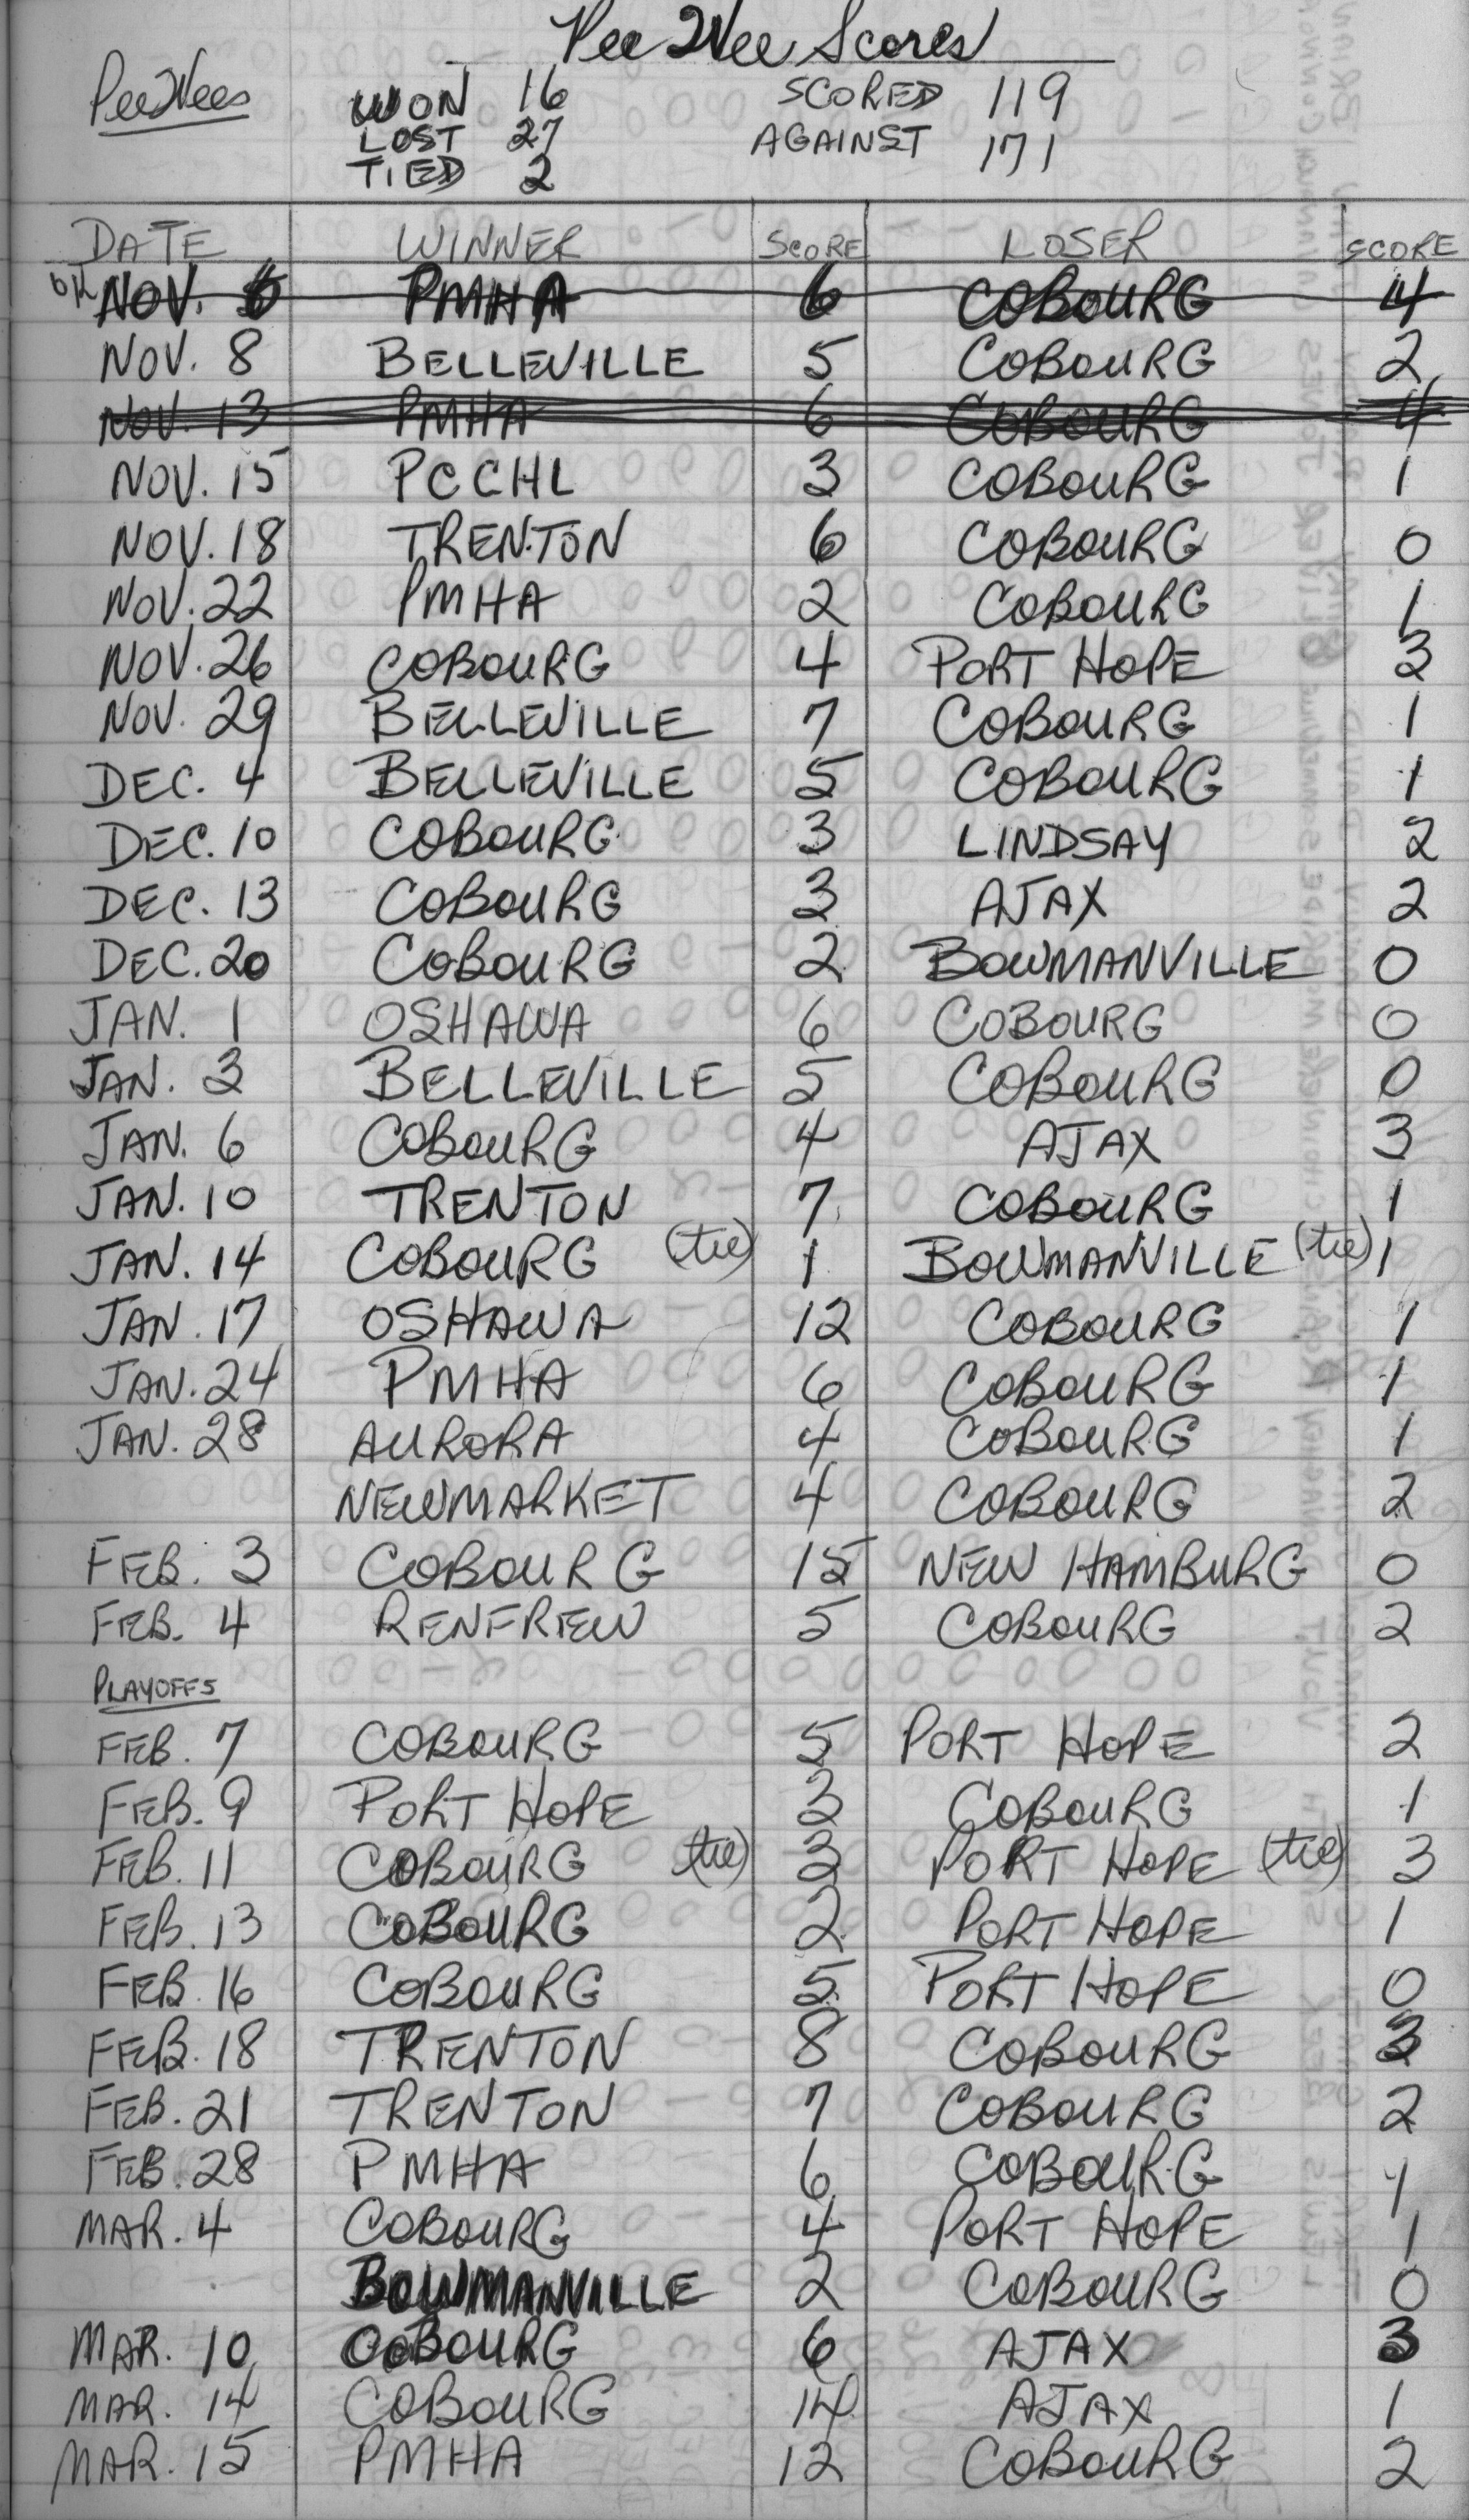 Pee Wee Scores
PeeWees WON 16 SCORED 119
LOST 27 AGAINST 171
TIED 2
DATE WINNER SCORE LOSER SCORE
OK NOV. 6 PMHA 6 COBOURG 4
NOV. 8 BELLEVILLE 5 COBOURG 2
NOV. 13 PMHA 6 COBOURG 4
NOV. 15 PCCHL 3 COBOURG 1
NOV. 18 TRENTON 6 COBOURG 0
NOV. 22 PMHA 2 COBOURG 1
NOV. 26 COBOURG 4 PORT HOPE 3
NOV. 29 BELLEVILLE 7 COBOURG 1
DEC. 4 BELLEVILLE 5 COBOURG 1
DEC. 10 COBOURG 3 LINDSAY 2
DEC. 13 COBOURG 3 AJAX 2
DEC. 20 COBOURG 2 BOWMANVILLE 0
JAN. 1 OSHAWA 6 COBOURG 0
JAN. 3 BELLEVILLE 5 COBOURG 0
JAN. 6 COBOURG 4 AJAX 3
JAN. 10 TRENTON 7 COBOURG 1
JAN. 14 COBOURG (tie) 1 BOWMANVILLE (tie) 1
JAN. 17 OSHAWA 12 COBOURG 1
JAN. 24 PMHA 6 COBOURG 1
JAN. 28 AURORA 4 COBOURG 1
NEWMARKET 4 COBOURG 2
FEB. 3 COBOURG 15 NEW HAMBURG 0
FEB. 4 RENFREW 5 COBOURG 2
PLAYOFFS
FEB. 7 COBOURG 5 PORT HOPE 2
FEB. 9 PORT HOPE 3 COBOURG 1
FEB. 11 COBOURG (tie) 3 PORT HOPE (tie) 3
FEB. 13 COBOURG 2 PORT HOPE 1
FEB. 16 COBOURG 5 PORT HOPE 0
FEB. 18 TRENTON 8 COBOURG 3
FEB. 21 TRENTON 7 COBOURG 2
FEB. 28 PMHA 6 COBOURG 1
MAR. 4 COBOURG 4 PORT HOPE 1
BOWMANVILLE 2 COBOURG 0
MAR. 10 COBOURG 6 AJAX 3
MAR. 14 COBOURG 14 AJAX 1
MAR. 15 PMHA 12 COBOURG 2